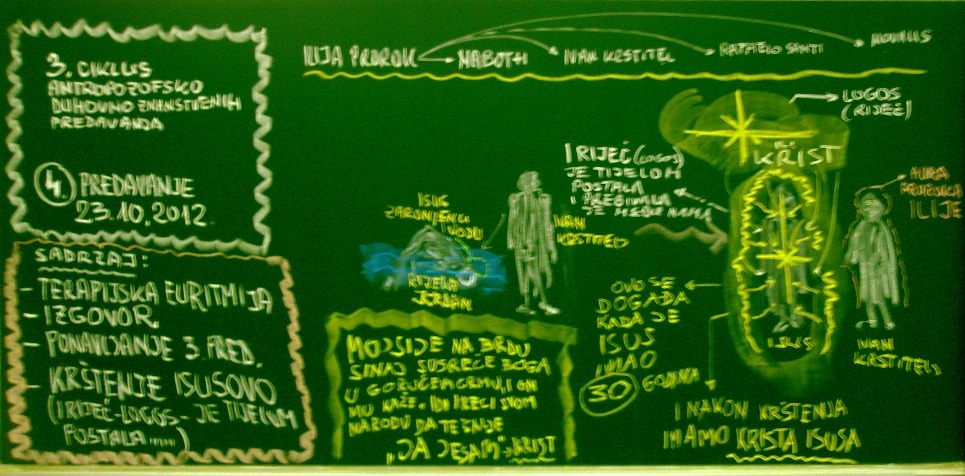 3. CIKLUS
ANTROPOZOFSKO
DUHOVNO ZNANSTVENIH
PREDAVANJA
4. PREDAVANJE
23.10.2012.
SADRŽAJ:
- TERAPIJSKA EURITMIJA
- IZGOVOR
- PONAVLJANJE 3. PRED.
- KRŠTENJE ISUSOVO
(I RIJEČ-LOGOS- JE TIJELOM
POSTALA.....)
ILIJA PROROK NABOTH IVAN KRSTITELJ RAFAELO SANTI NOVALIS
LOGOS
(RIJEČ)
KRIST
I RIJEČ (LOGOS)
JE TIJELOM
POSTALA
I PREBIVALA
JE MEĐU NAMA
AURA
PROROKA
ILIJE
ISUS
ZARONJEN U
VODU
IVAN
KRSTITELJ
RIJEKA
JORDAN
OVO SE
DOGAĐA
KADA JE
ISUS
IMAO
30 GODINA
ISUS
IVAN
KRSTITELJ
MOJSIJE NA BRDU
SINAJ SUSREĆE BOGA
U GORUĆEM GRMU, I ON
MU KAŽE. IDI I RECI SVOM
NARODU DA TE ŠALJE
"JA JESAM" KRIST
I NAKON KRŠTENJA
IMAMO KRISTA ISUSA